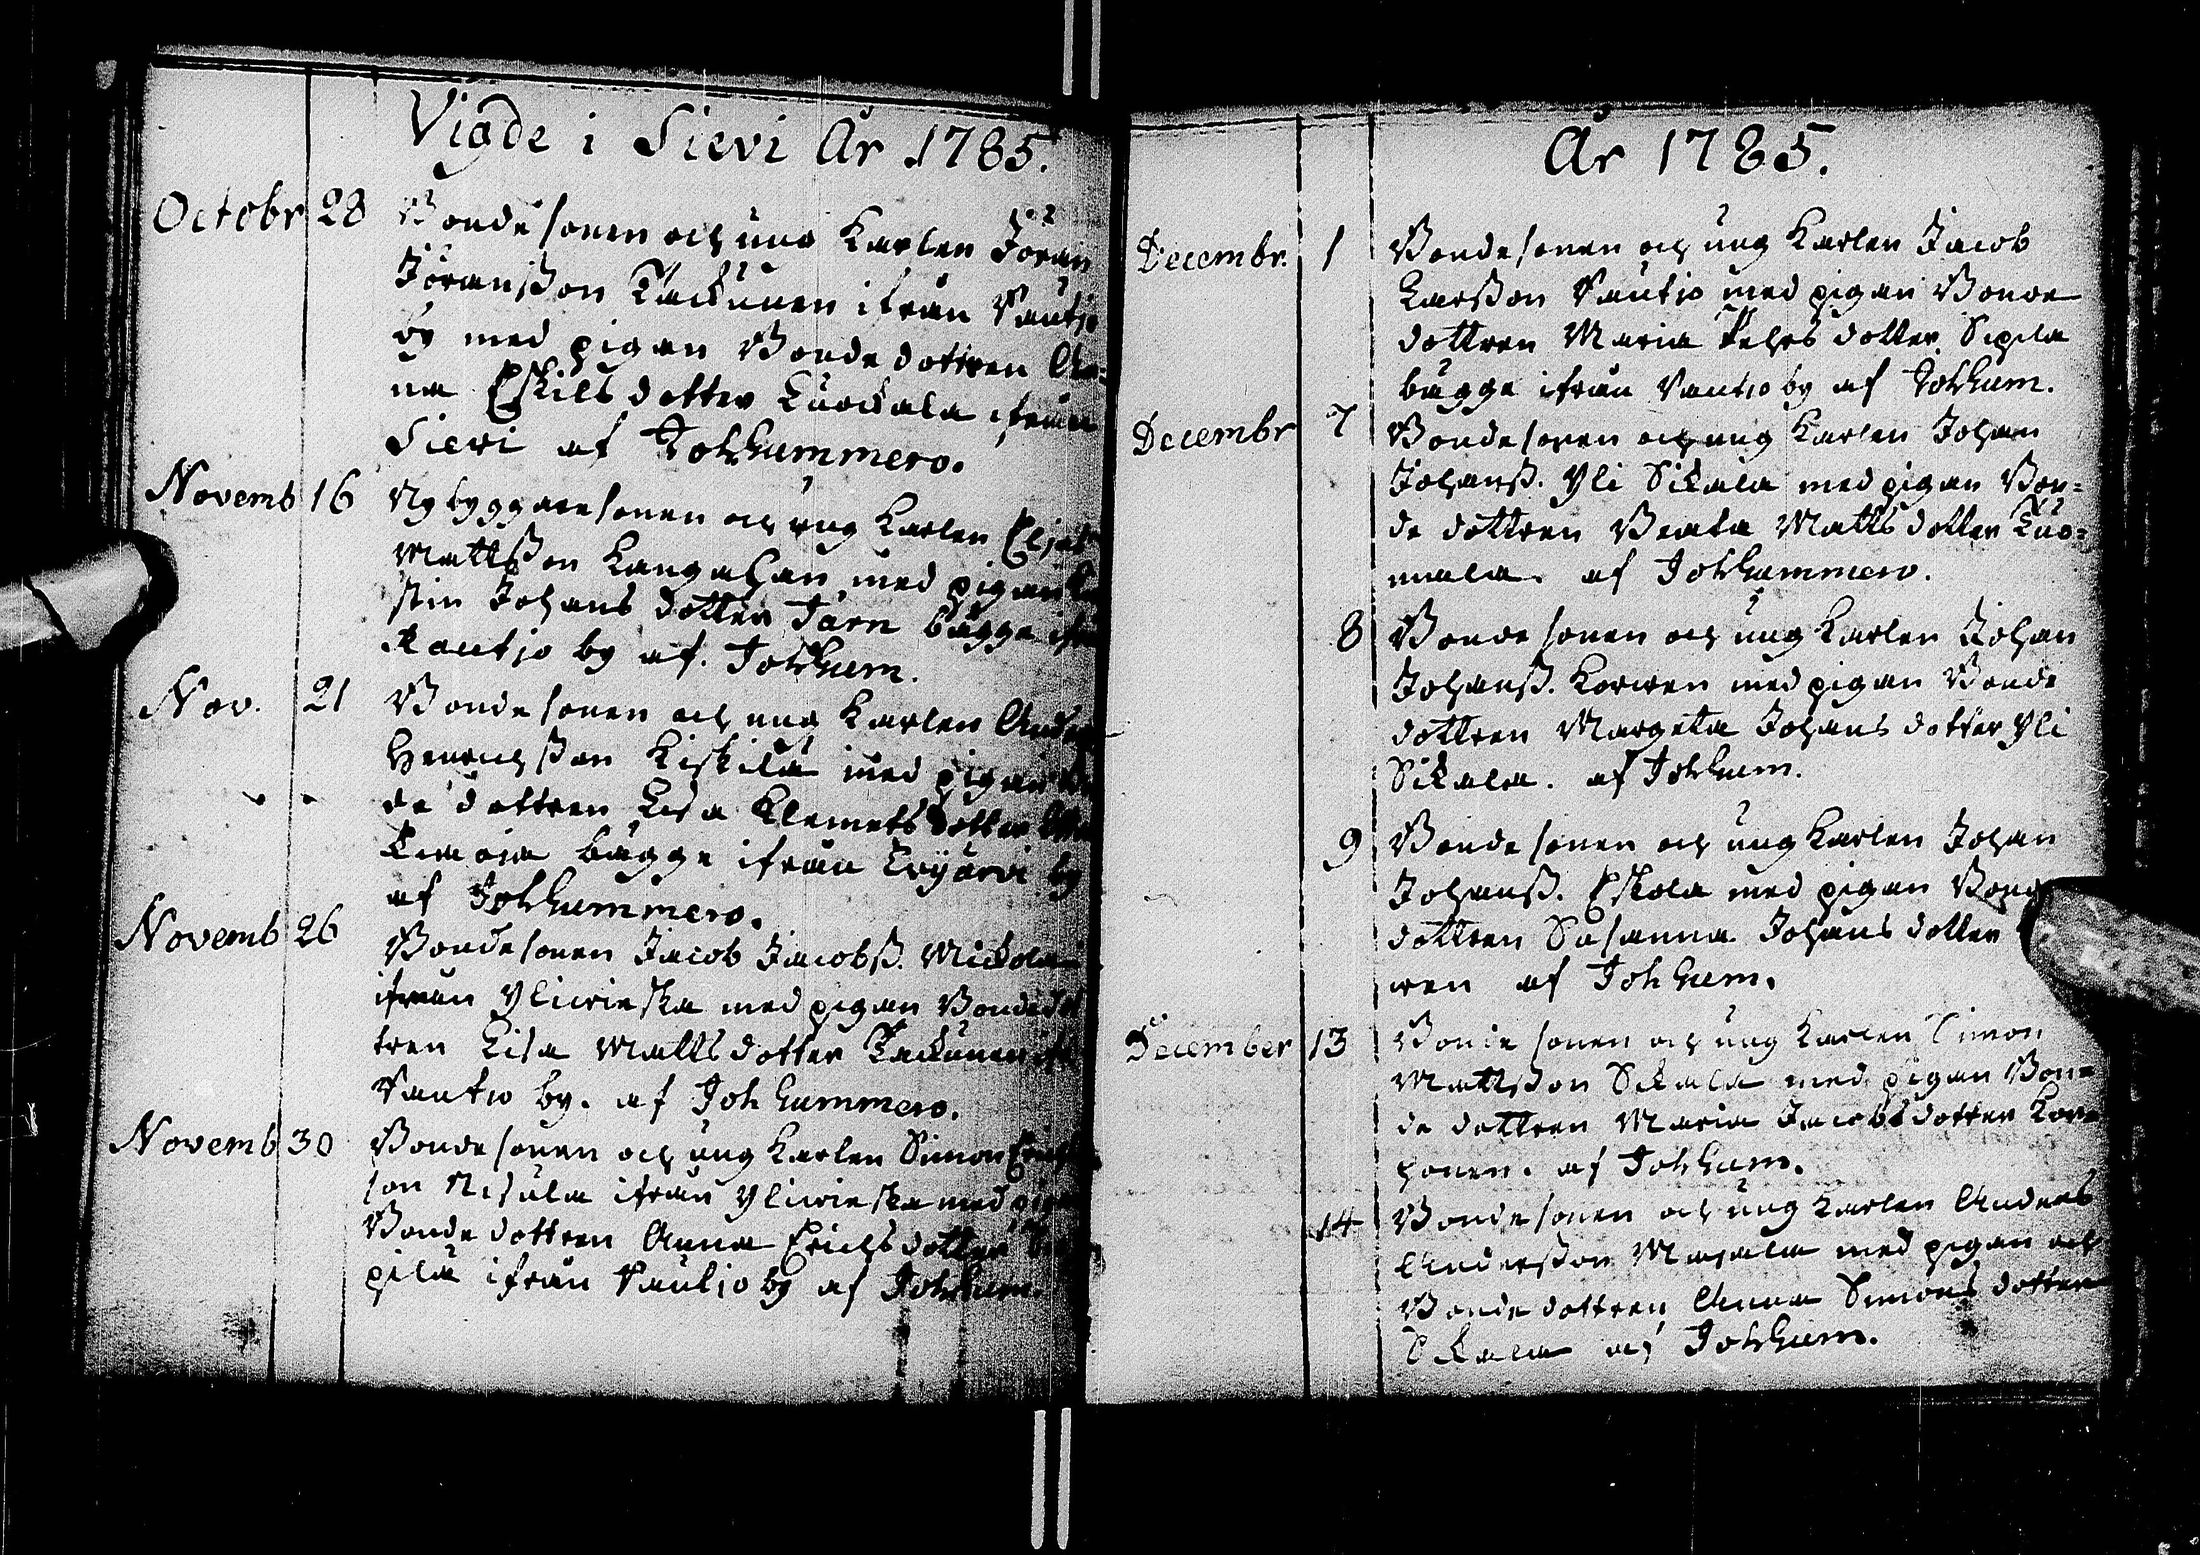 Vigde i Sievi År 1785.
Octobr 28 Bondesonen och ung Karlen Jöran
Jöransson Tackunen ifrån Vautjo
by med pigan Bonde dottren An=
na Eskils dotter Luockala ifrån
Sievi af Joh Hummero.
Novemb 16 Nybyggaresonen och ung Karlen Elias
Mattsson Kangahan med pigan
stin Johans dotter Järn bägge ifrån
Rautjo by af. Joh Hum.
Nov. 21 Bondesonen och ung Karlen Anders
Henrichsson Kiskilä med pigan
de dottren Lisa Klemets dotter
bägge ifrån Evijärvi by
af Joh Hummero.
Novemb 26 Bondesonen Jacob Jacobss. Mickola
ifrån Yliwieska med pigan Bondedot
tren Lisa Matts dotter Tackunen
Vautjo by. af Joh Hummero.
Novemb 30 Bondesonen och ung Karlen Simon Erichs
son Nisula ifrån Yliwieska med pigan
Bonde dottren Anna Erichs dotter
pilä ifrån Vautjo by af Joh Hum.
År 1785.
Decembr. 1 Bondesonen och ung Karlen Jacob
Larsson Vautjo med pigan Bonde
dottren Maria Pehrs dotter Sipila
bägge ifrån Vautjo by af Joh Hum.
Decembr 7 Bondesonen och ung Karlen Johan
Johanss. Yli Sikala med pigan Bon=
de dottren Beata Matts dotter Luo=
mala. af Joh Hummero.
8 Bondesonen och ung Karlen Johan
Johanss. Korwen med pigan Bonde
dottren Margeta Johans dotter Yli
Sikala. af Joh Hum.
9 Bondesonen och ung Karlen Johan
Johanss. Eskola med pigan Bonde
dottren Susanna Johans dotter
wen af Joh Hum.
December 13 Bondesonen och ung Karlen Simon
Mattsson Sikala med pigan Bon=
de dottren Maria Jacobs dotter Kor=
honen. af Joh Hum.
14 Bondesonen och ung Karlen Anders
Andersson Majala med pigan och
Bonde dottren Anna Simons dotter
Sikala af Joh Hum.